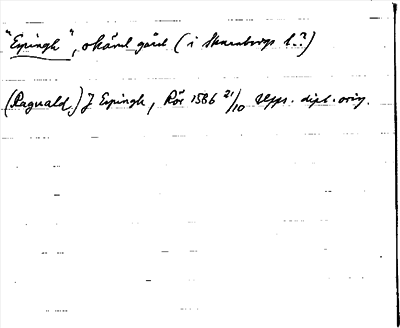 "Espingh", okänd gård (i Skaraborgs l.?)
(Ragvald) J Espingh, Rör 1586 21/10 Upps. dipl. orig.